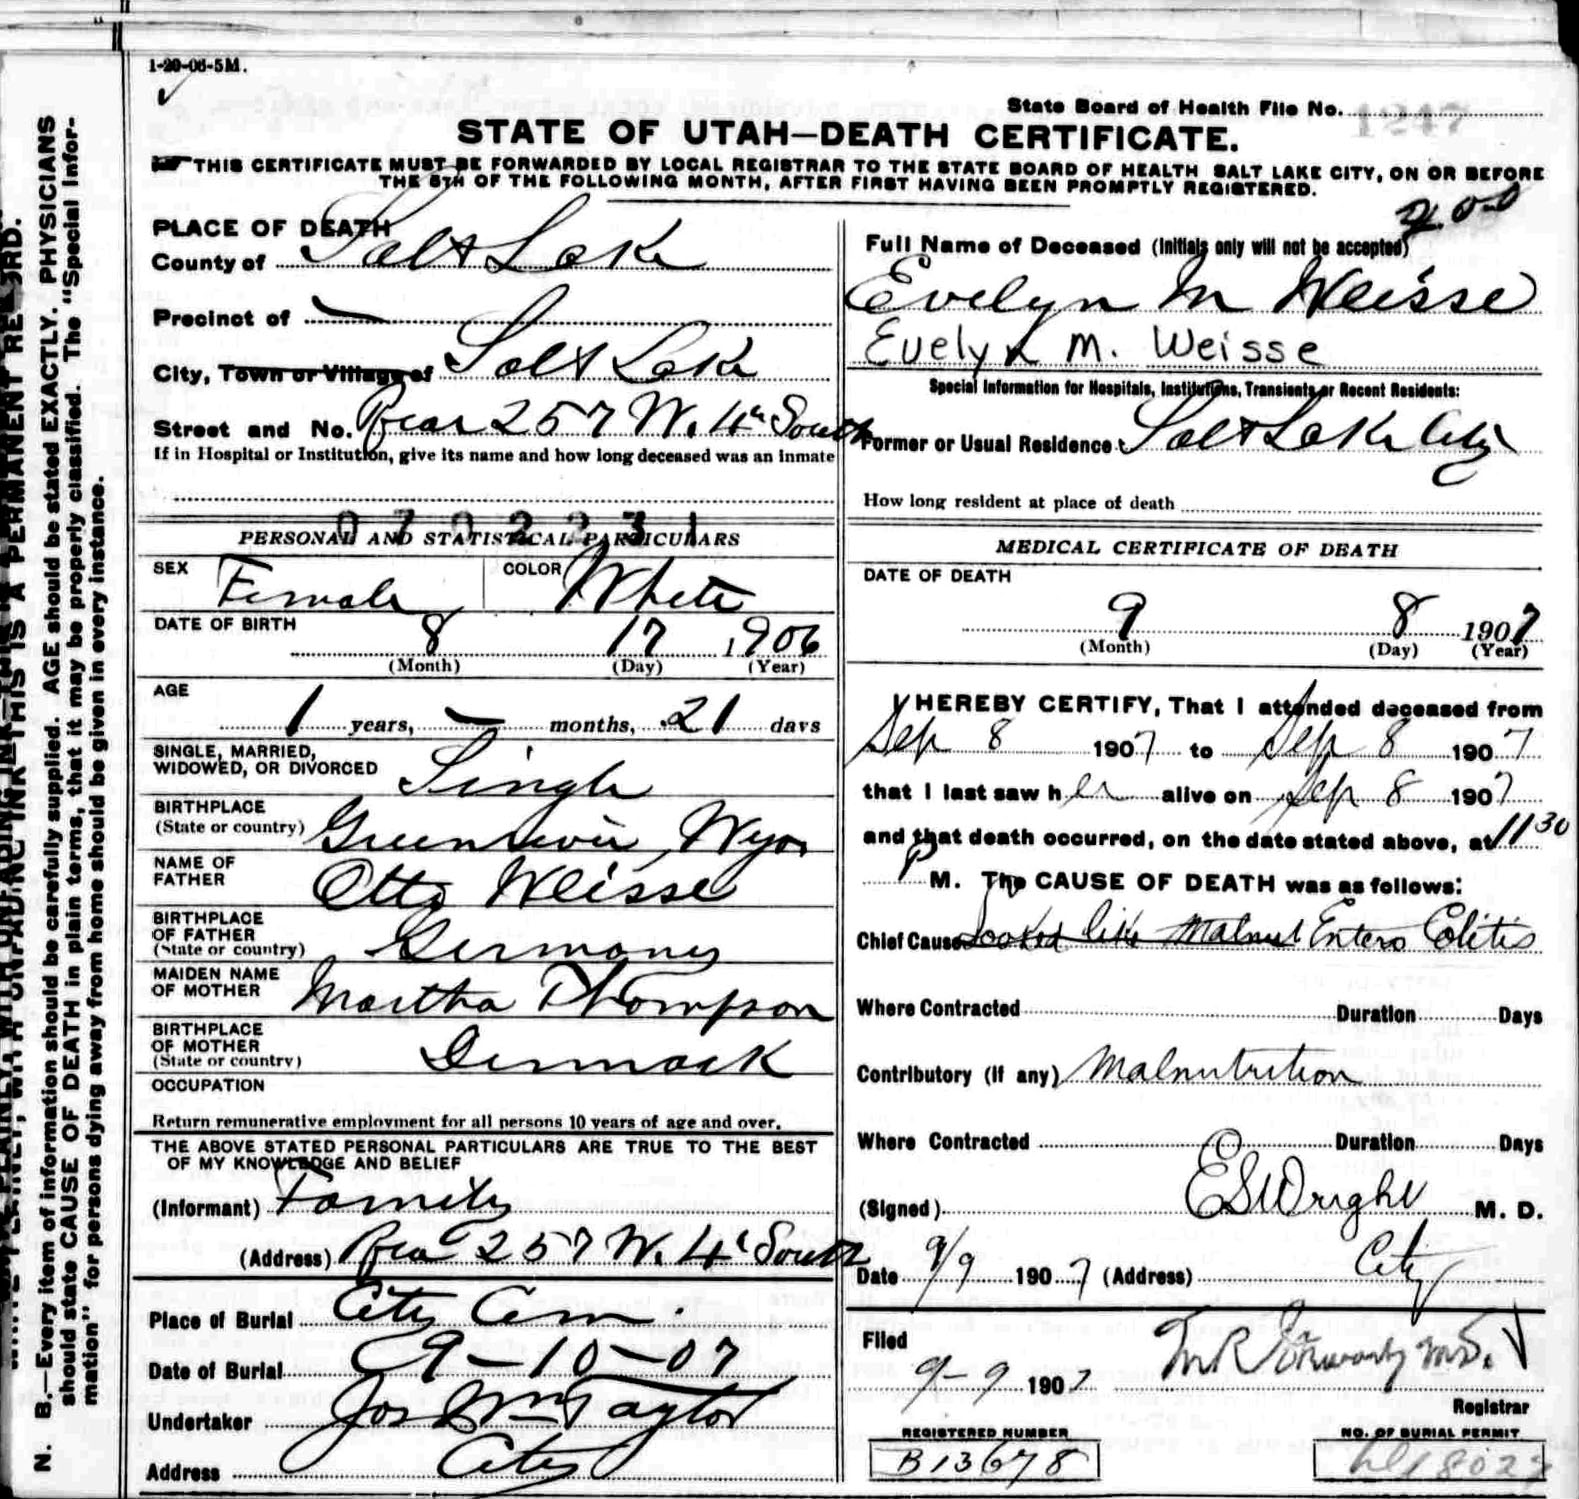 1-20-06-5M.
State Board of Health File No.
STATE OF UTAH—DEATH CERTIFICATE.
THIS CERTIFICATE MUST BE FORWARDED BY LOCAL REGISTRAR TO THE STATE BOARD OF HEALTH SALT LAKE CITY, ON OR BEFORE
THE 5TH OF THE FOLLOWING MONTH, AFTER FIRST HAVING BEEN PROMPTLY REGISTERED.
PLACE OF DEATH
County of Salt Lake
Precinct of —
City, Town or Village of Salt Lake
Street and No. Rear 257 W. 4th South
If in Hospital or Institution, give its name and how long deceased was an inmate
Full Name of Deceased (Initials only will not be accepted)
Evelyn M Weisse
Evelyn M. Weisse
Special Information for Hospitals, Institutions, Transients or Recent Residents:
Former or Usual Residence Salt Lake City
How long resident at place of death
070223 1
PERSONAL AND STATISTICAL PARTICULARS
SEX Female COLOR White
DATE OF BIRTH
8 17 1906
(Month) (Day) (Year)
AGE
1 years, — months, 21 days
SINGLE, MARRIED,
WIDOWED, OR DIVORCED Single
BIRTHPLACE
(State or country) Greenriver, Wyo
NAME OF
FATHER Otto Weisse
BIRTHPLACE
OF FATHER
(State or country) Germany
MAIDEN NAME
OF MOTHER Martha Thompson
BIRTHPLACE
OF MOTHER
(State or country) Denmark
OCCUPATION
Return remunerative employment for all persons 10 years of age and over.
THE ABOVE STATED PERSONAL PARTICULARS ARE TRUE TO THE BEST
OF MY KNOWLEDGE AND BELIEF
(Informant) Family
(Address) Rear 257 W. 4th South
Place of Burial City Cem.
Date of Burial 9-10-07
Undertaker Jos Wm Taylor
Address City
MEDICAL CERTIFICATE OF DEATH
DATE OF DEATH
9 8 1907
(Month) (Day) (Year)
I HEREBY CERTIFY, That I attended deceased from
Sep 8 1907 to Sep 8 1907
that I last saw her alive on Sep 8 1907
and that death occurred, on the date stated above, at 11 30
P M. The CAUSE OF DEATH was as follows:
Chief Cause Looked like Malnut Entero Colitis
Where Contracted Duration Days
Contributory (if any) Malnutrition
Where Contracted Duration Days
(Signed) E S Wright M. D.
Date 9/9 1907 (Address) City
Filed
9-9 1907
Registrar
REGISTERED NUMBER
B13678
NO. OF BURIAL PERMIT
N. B.—Every item of information should be carefully supplied. AGE should be stated EXACTLY. PHYSICIANS
should state CAUSE OF DEATH in plain terms, that it may be properly classified. The "Special Infor-
mation" for persons dying away from home should be given in every instance.